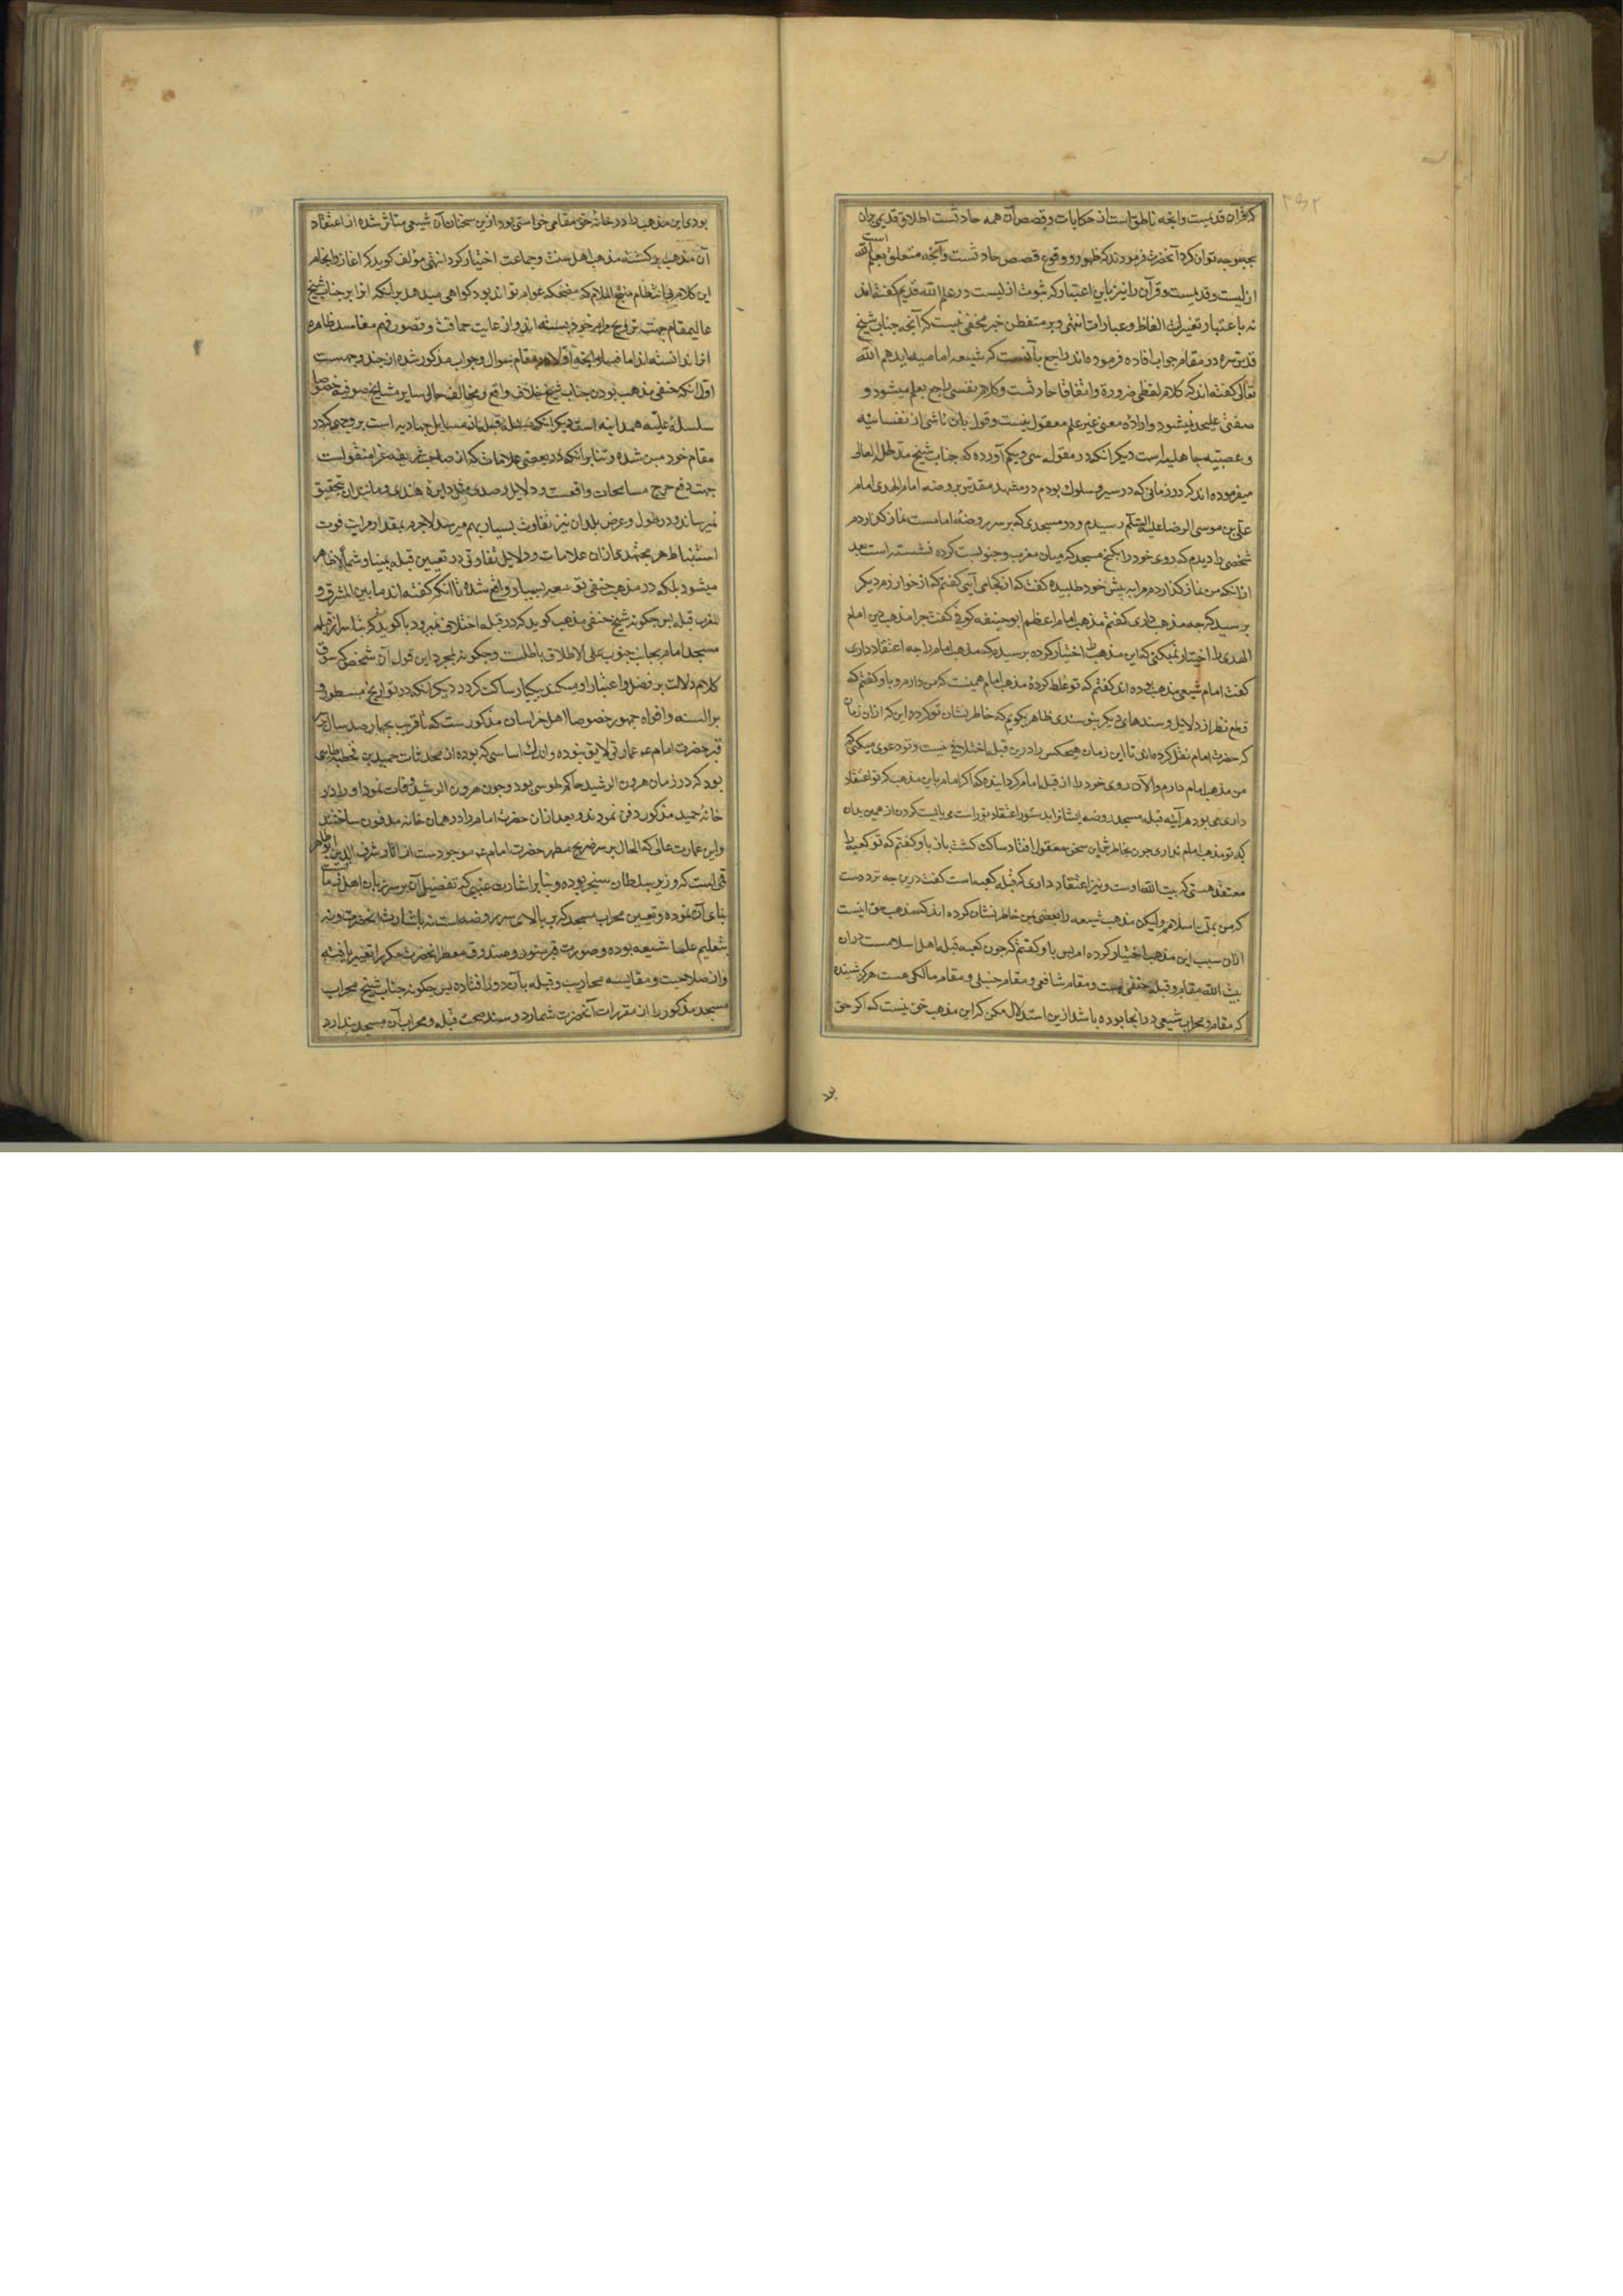 که قرآن قدیمست وانچه ناطق است از حکایات و قصص آن همه حادثست اطلاق قدیمی بران
بچه وجه توان کرد آنحضرت فرمودند که ظهور و وقوع قصص حادثست وآنچه متعلق بعلم الله است
ازلیست و قدیمست و قرآن را نیز باین اعتبار که ثبوت ازلیست در علم الله قدیم گفته‌اند
نه باعتبار تغیرات الفاظ و عبارات انتهی و بر متفطن خبیر مخفی نیست که آنچه جناب شیخ
قدس سره در مقام جواب افاده فرموده‌اند راجع بآنست که شیعه امامیه ایدهم الله
تعالی گفته‌اند که کلام لفظی ضرورة واتفاقا حادثست و کلام نفسی راجع بعلم میشود و
صفتی علیحده نمیشود و اراده معنی غیر علم معقول نیست و قول بان ناشی از نفسانیه
و عصبیه جاهلیه است دیگر انکه در مقوله سی و یکم آورده که جناب شیخ مد ظله العالی
میفرموده‌اند که در زمانی که در سیر و سلوک بودم در مشهد مقدس بروضه امام الهدی امام
علی بن موسی الرضا علیه السلم رسیدم و در مسجدی که بر سر روضهٔ امامست نماز گذاردم
شخصی را دیدم که روی خود را بکنج مسجد که میان مغرب و جنوبست کرده نشسته است بعد
ازانکه من نماز گذاردم مرا به پیش خود طلبیده گفت که از کجا می آیی گفتم که از خوارزم دیگر
پرسید که چه مذهب داری گفتم مذهب امام اعظم ابوحنیفه کوفی گفت چرا مذهب این امام
الهدی را اختیار نمیکنی که این مذهب را اختیار کرده پرسیدم که مذهب امام را چه اعتقاد داری
گفت امام شیعی مذهب بوده اند گفتم که تو غلط کردهٔ مذهب امام همینست که من دارم و باو گفتم که
قطع نظر از دلایل و سندهای دیگر بتو سندی ظاهر بگویم که خاطر نشان تو گردد این که ازان زمان
که حضرت امام نقل کرده‌اند تا این زمان هیچکس را درین قبله اختلافی نیست و تو دعوی میکنی که
من مذهب امام دارم والآن روی خود را از قبله امام گردانیدهٔ که اگر امام باین مذهب که تو اعتقاد
داری می بود هر آینه قبله مسجد روضه ایشانرا بدستور اعتقاد تو راست می بایست کردن ازهمین بدان
که تو مذهب امام نداری چون بخاطرش این سخن معقول افتاد ساکت گشت باز باو گفتم که تو کعبه را
معتقد هستی که بیت الله اوست و نیز اعتقاد داری که قبله کعبه است گفت درین چه تردد است
که من بملت اسلامم ولیکن مذهب شیعه را بعضی بمن خاطر نشان کرده اند که مذهب حق اینست
ازان سبب این مذهب اختیار کرده ام پس باو گفتم که چون کعبه قبله اهل اسلامست دران
بیت الله مقام و قبله حنفی هست و مقام شافعی و مقام حنبلی و مقام مالکی هست هرگز شنیده
که مقام و محراب شیعی در انجا بوده باشد ازین استدلال مکن که این مذهب حق نیست که اگر حق
بودی این مذهب را در خانهٔ حق مقامی خواستی بود ازین سخنان آن شیعی متاثر شده از اعتقاد
آن مذهب برگشته مذهب اهل سنت و جماعت اختیار کرد انتهی مؤلف گوید که اغاز وانجام
این کلام که مضحکه عوام تواند بود گواهی میدهد برانکه انرا بر جناب شیخ
عالیمقام جهت ترویج مرام خود بسته اند و از غایت حماقت و قصور فهم مفاسد ظاهره
انرا ندانسته‌اند اما فساد انچه اولا در مقام سوال و جواب مذکور شده از چند وجهست
اول انکه حنفی مذهب بودن جناب شیخ خلاف واقع و مخالف حال سایر مشایخ صوفیه خصوصا
سلسلهٔ علیه همدانیه است دیگر انکه مسئله قبله از مسایل اجتهادیه است بر وجهی که در
مقام خود مبین شده و بنابر انکه در بعضی علامات که از صاحب شریعه غرا منقولست
جهت دفع حرج مسامحات واقعست و دلایل رصدی مثل دایرهٔ هندی و مانند ان بتحقیق
نمیرساند و در طول و عرض بلدان نیز تفاوت بسیار بهم میرسد لاجرم بمقدار مراتب قوت
استنباط هر مجتهدی ازان علامات و دلایل تفاوتی در تعیین قبله یمینا و شمالا ظاهر
میشود بلکه در مذهب حنفی توسعه بسیار واقع شده تا انکه گفته اند ما بین المشرق و
المغرب قبله پس چگونه شیخ حنفی مذهب گوید که در قبله اختلافی نمیرود یا گوید که
مسجد امام بجانب جنوب علی الاطلاق باطلست و چگونه بمجرد این قول آن شخص که سوق
کلام دلالت بر فضل و اعتبار او میکند بیکبار ساکت گردد دیگر انکه در تواریخ مسطور و
بر السنه و افواه جمهور خصوصا اهل خراسان مذکورست که تا قریب بچهار صد سال بر سر
قبر حضرت امام عم عمارتی لایق نبوده و اندک اساسی که بوده از محدثات حمید بن قحطبه طایی
بود که در زمان هرون الرشید حاکم طوس بود و چون هرون الرشید وفات نمود او را در
خانهٔ حمید مذکور دفن نمودند و بعد ازان حضرت امام را در همان خانه مدفون ساختند
واین عمارت عالی که الحال بر سر ضریح مطهر حضرت امام عم موجودست از اثار شرف الدین ابوطاهر
قمی است که وزیر سلطان سنجر بوده و بنابر اشارت غیبی که تفضیل آن بر سر زبان اهل است
بنای آن نموده و تعیین محراب مسجد که بر بالای سر روضه است نه باشارت انحضرت و نه
بتعلیم علما شیعه بوده و صورت قبر منور و صندوق معطر انحضرت مکرر تغییر یافته
و از صلاحیت و مقایسه محاریب و قبله بآن دور افتاده پس چگونه جناب شیخ محراب
مسجد مذکور را از مقررات آنحضرت شمارد و سند صحت قبله و محراب آن مسجد پندارد